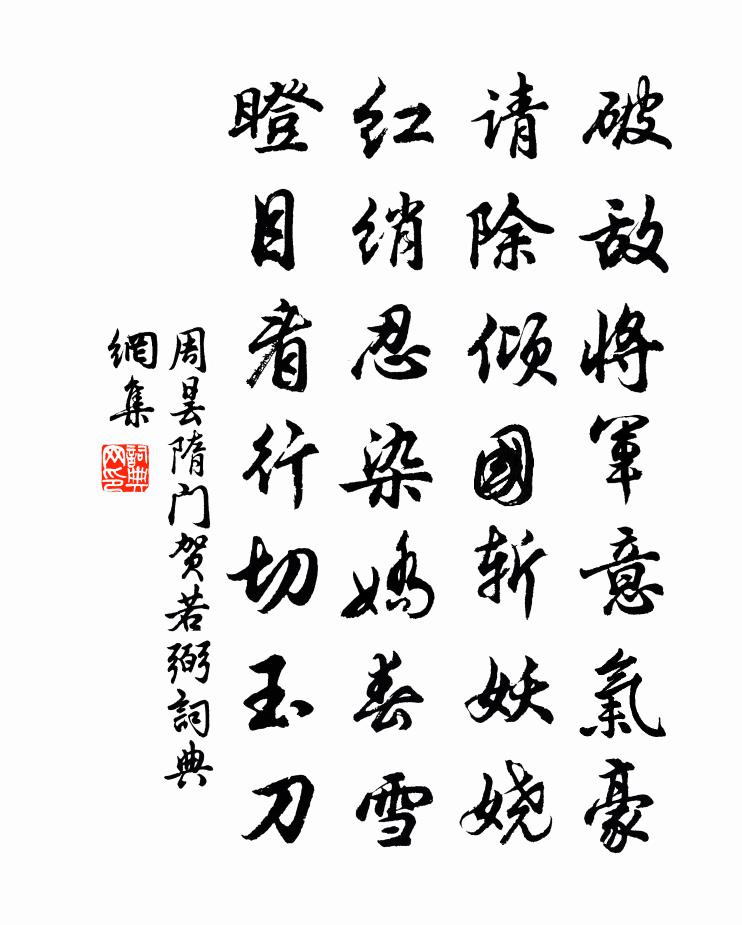 破敌将军意氣豪
请除倾國斩妖娆
红绡忍染娇春雪
瞪目看行切玉刀
周昙隋门贺若弼詞典
網集
詞典
网印